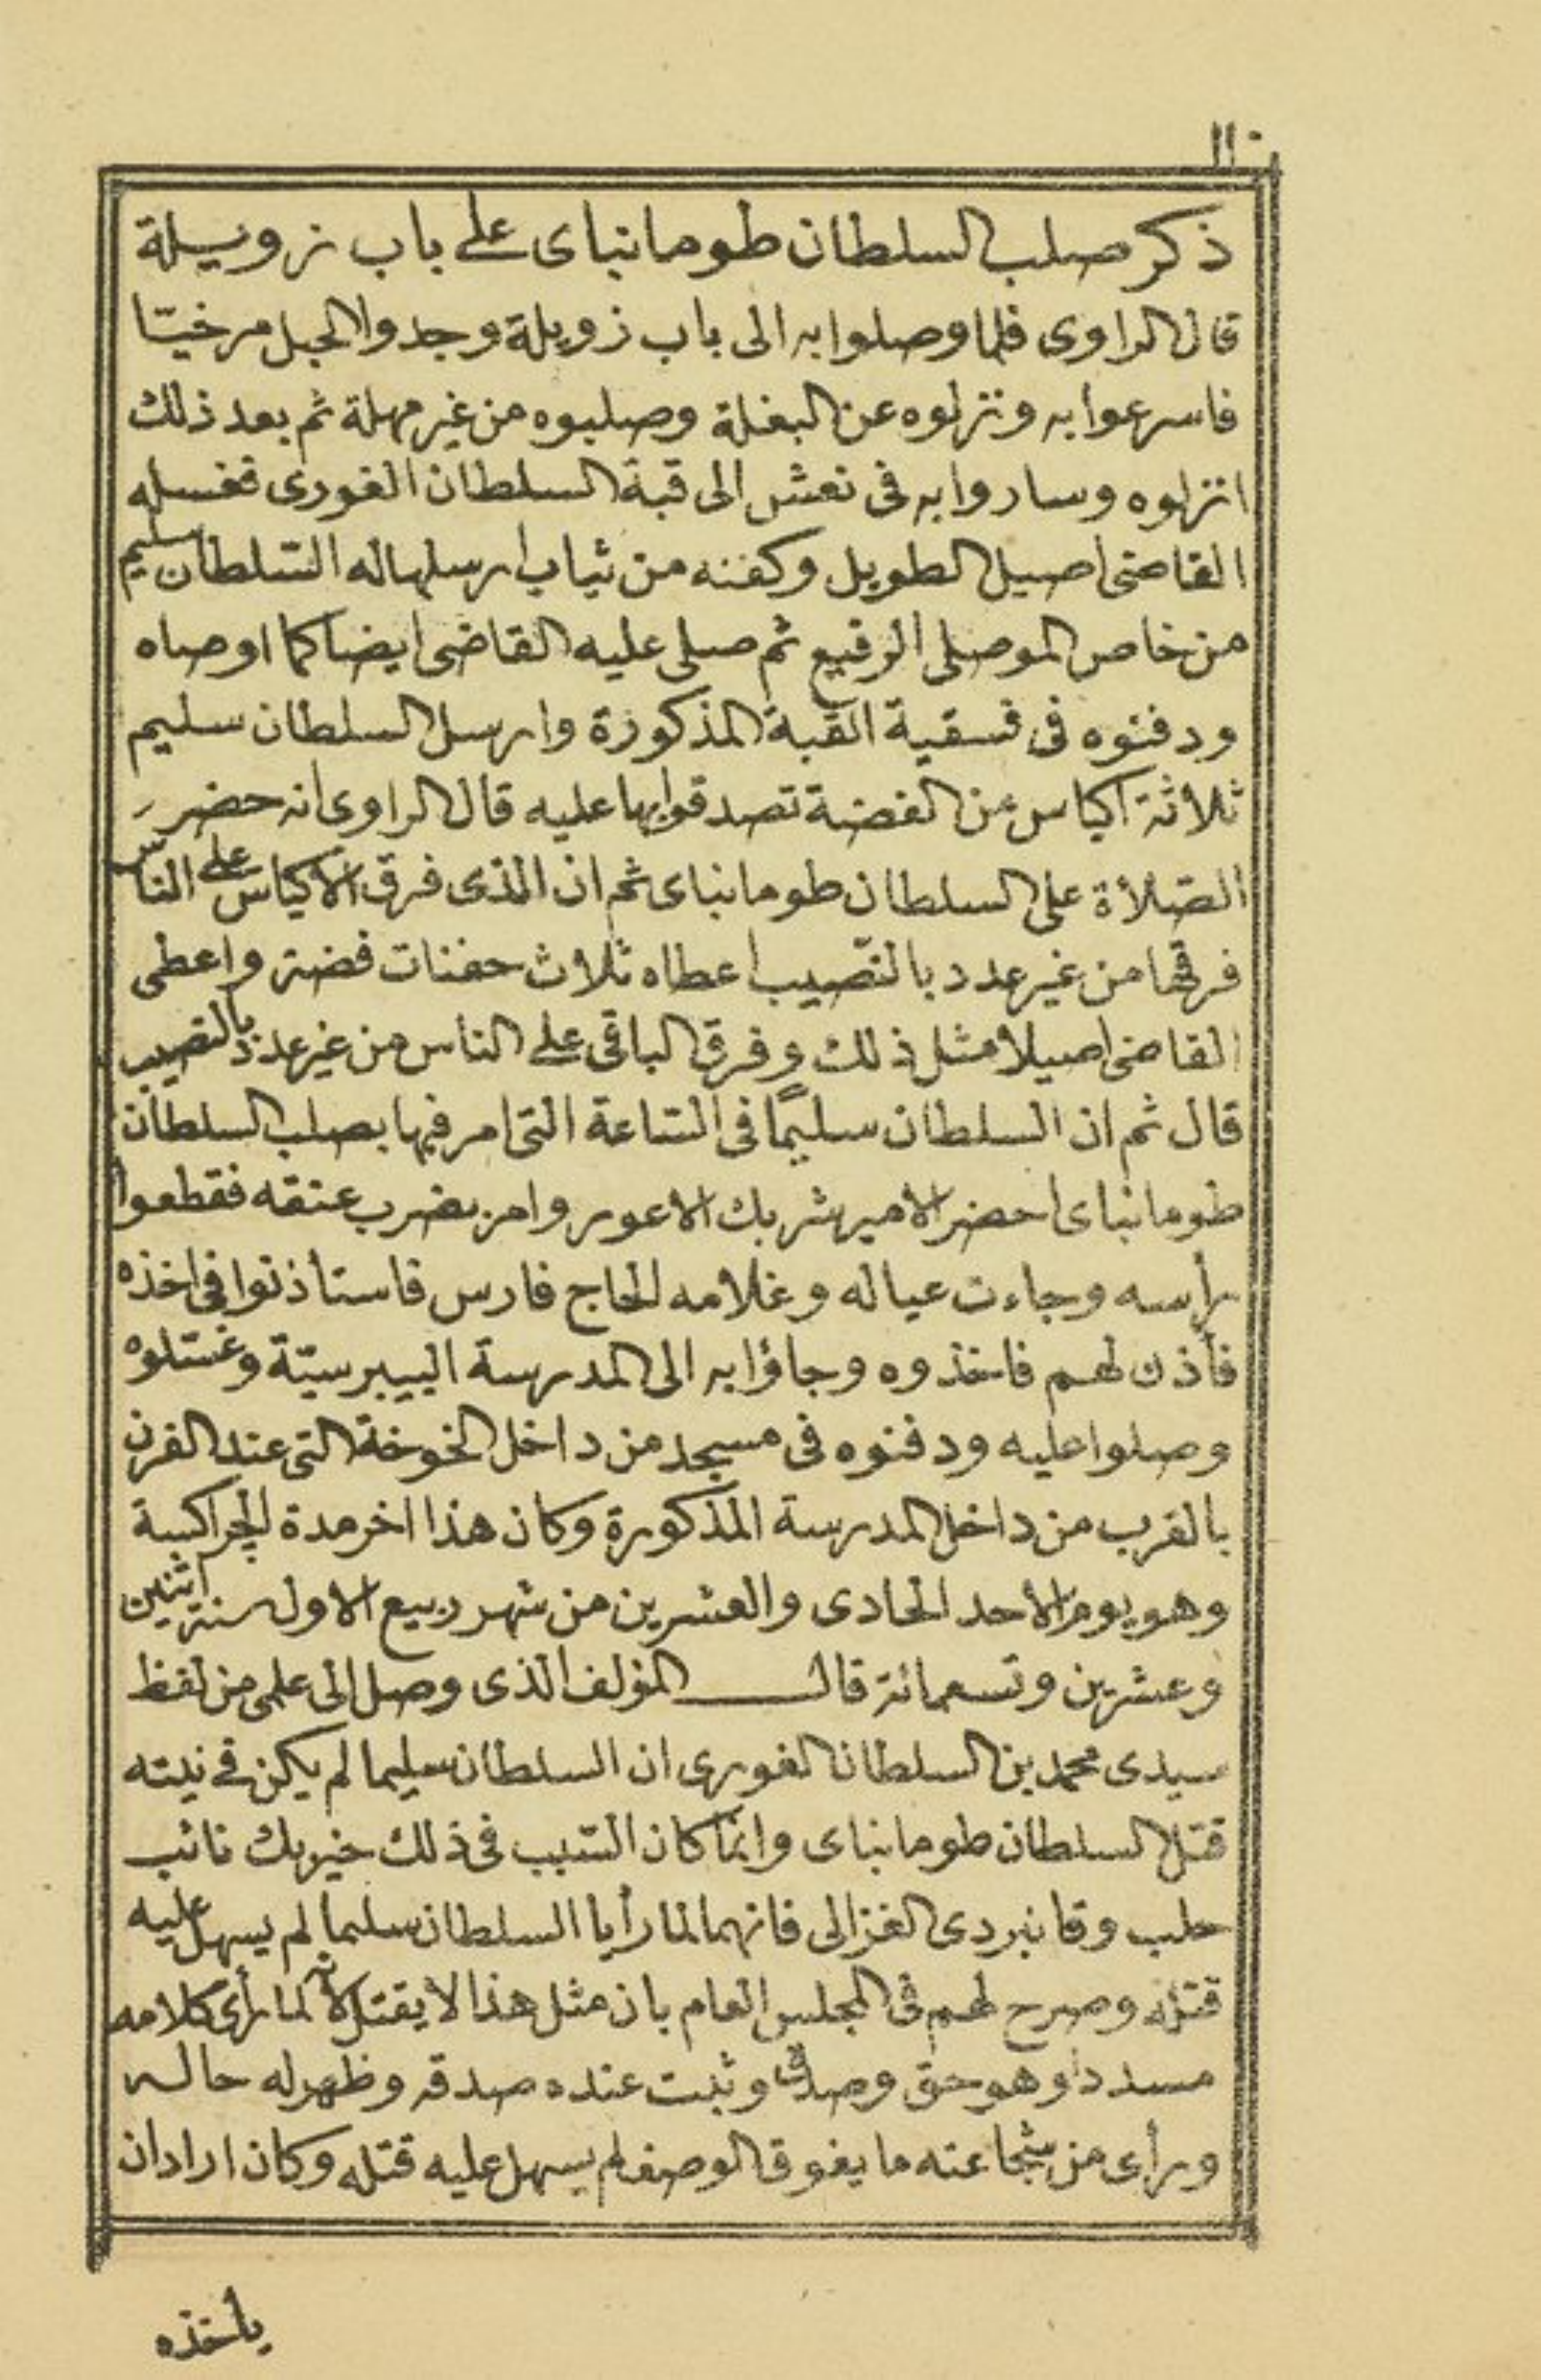 ١١٠
ذكر صلب السلطان طومانباى على باب زويلة
قال الراوى فلما وصلوا به الى باب زويلة وجدوا الحبل مرخيّا
فاسرعوا به ونزلوه عن البغلة وصلبوه من غير مهلة ثم بعد ذلك
انزلوه وساروا به فى نعش الى قبة السلطان الغورى فغسله
القاضى اصيل الطويل وكفنه من ثياب ارسلها له السّلطان سليم
من خاص الموصلى الرفيع ثم صلى عليه القاضى ايضا كما اوصاه
ودفنوه فى فسقية القبة المذكورة وارسل السلطان سليم
ثلاثة اكياس من الفضة تصدقوا بها عليه قال الراوى انه حضر
الصّلاة على السلطان طومانباى ثم ان الذى فرق الاكياس على الناس
فرقها من غير عدد بالنّصيب اعطاه ثلاث حفنات فضة واعطى
القاضى اصيلا مثل ذلك وفرق الباقى على الناس من غير عدد بالنصيب
قال ثم ان السلطان سليمًا فى السّاعة التى امر فيها بصلب السلطان
طومانباى احضر الامير شربك الاعور وامر بضرب عنقه فقطعوا
رأسه وجاءت عياله وغلامه الحاج فارس فاستأذنوا فى اخذه
فأذن لهم فاخذوه وجاؤا به الى المدرسة البيبرسيّة وغسّلوه
وصلوا عليه ودفنوه فى مسجد من داخل الخوخة التى عند الفرن
بالقرب من داخل المدرسة المذكورة وكان هذا اخر مدة الجراكسة
وهو يوم الأحد الحادى والعشرين من شهر ربيع الاول سنة اثنين
وعشرين وتسعمائة قال المؤلف الذى وصل الى علمى من لفظ
سيدى محمد بن السلطان الغورى ان السلطان سليما لم يكن فى نيته
قتل السلطان طومانباى وانما كان السّبب فى ذلك خيربك نائب
حلب وقانبردى الغزالى فانهما لما رأيا السلطان سليما لم يسهل عليه
قتله وصرح لهم فى المجلس العام بان مثل هذا لا يقتل لانه لما رأى كلامه
مسددا وهو حق وصدق وثبت عنده صدقه وظهر له حاله
ورأى من شجاعته ما يفوق الوصف لم يسهل عليه قتله وكان اراد ان
يأخذه